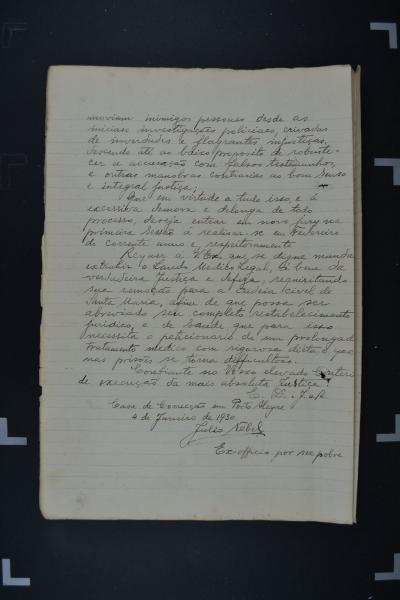 moviam inimigos pessoaes desde as
iniciaes investigações policiaes, crivadas
de inverdades e flagrantes injustiças,
descendo até ao baixo proposito de robuste-
cer a accusação com falsos testemunhos,
e outras manobras contrarias ao bom senso
e integral justiça;
Que em virtude a tudo isso, e á
excessiva demora e delonga de todo
processo, deseja entrar em novo jury na
primeira sessão á realisar-se em Fevereiro
do corrente anno e respeitosamente
Requer á V. Ex. que se digne mandar
extrahir o Laudo Medico Legal, á bem da
verdadeira Justiça e defeza, requisitando
sua remoção para a Cadeia Civel de
Santa Maria, afim de que possa ser
abreviado seu completo restabelecimento
juridico, e de saude, que para isso
necessita o peticionario de um prolongado
tratamento medico com rigorosa dieta, o que
nas prisões se torna difficultoso.
Confiante no Vosso elevado Criterio
de execução da mais absoluta Justiça!
Casa de Correcção em Porto Alegre
4 de Janeiro de 1930
Julio
Ex-officio por ser pobre